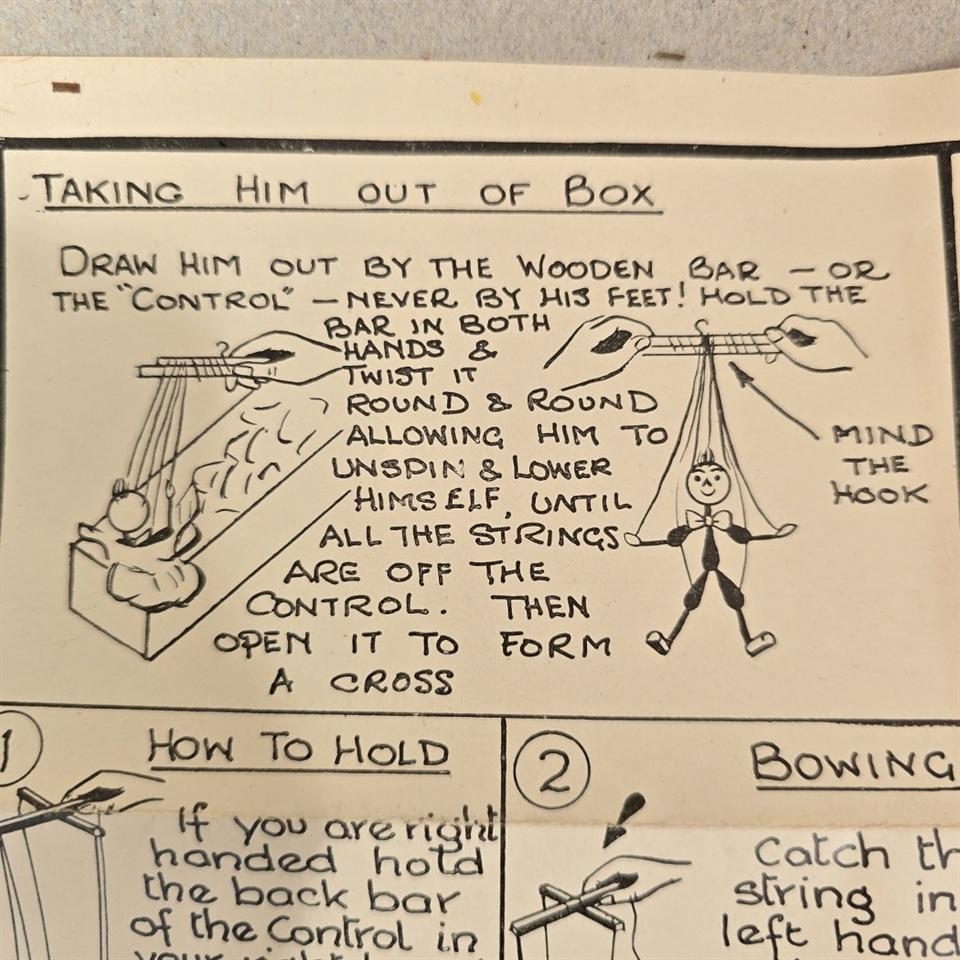 TAKING HIM OUT OF BOX
DRAW HIM OUT BY THE WOODEN BAR – OR
THE "CONTROL" – NEVER BY HIS FEET! HOLD THE
BAR IN BOTH
HANDS &
TWIST IT
ROUND & ROUND
ALLOWING HIM TO
UNSPIN & LOWER
HIMSELF, UNTIL
ALL THE STRINGS
ARE OFF THE
CONTROL. THEN
OPEN IT TO FORM
A CROSS
MIND
THE
HOOK
1
HOW TO HOLD
If you are right
handed hold
the back bar
of the Control in
2
BOWING
Catch th
string in
left hand